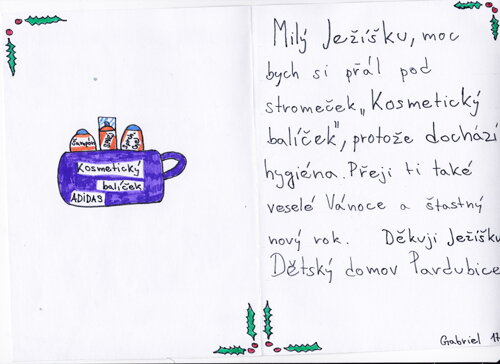 Šampón
Kosmetický
balíček
ADIDAS
Milý Ježíšku, moc
bych si přál pod
stromeček „Kosmetický
balíček", protože dochází
hygiéna. Přeji ti také
veselé Vánoce a štastný
nový rok. Děkuji Ježíšku
Dětský domov Pardubice
Gabriel 17